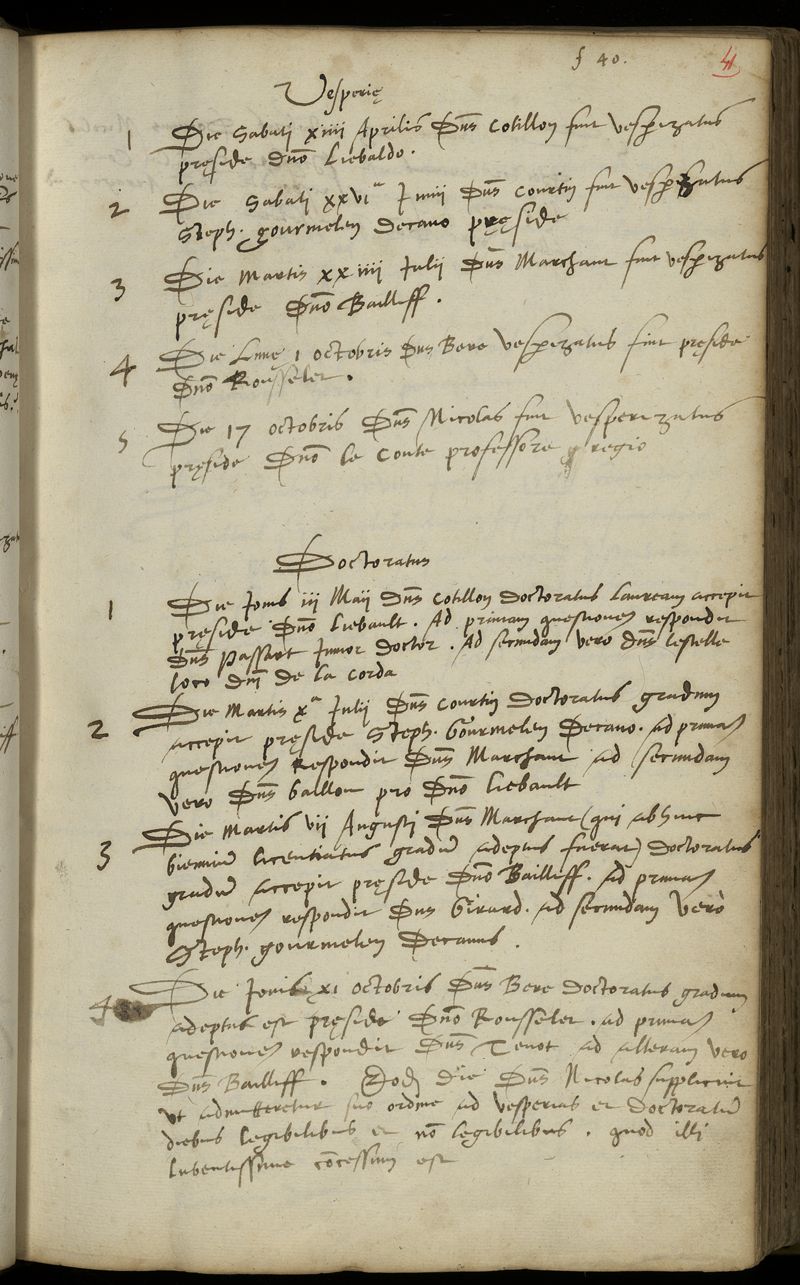 f 40. 41
Vesperię
1 Die Sabati xiiii Aprilis Dn̄s Cotillon fuit vesperizatus
pręside dn̄o Liebaldo.
2 Die Sabati xxvıᵃ Junii Dn̄s Courtin fuit vesperizatus
Steph. gourmelen Decano pręside
3 Die Martis xxiiii Julii Dn̄s Marchant fuit vesperizatus
pręside Dn̄o Bailliff.
4 Die Lunę 1 octobris Dn̄s Bere vesperizatus fuit pręside
Dn̄o Rousselet.
5 Die 17 octobris Dn̄s Nicolas fuit vesperizatus
pręside Dn̄o le Conte professore regio
Doctoratus
1 Die Jovis iij Maij dn̄s Cotillon doctoratus lauream accepit
pręside Dn̄o Liebault. Ad primam questionem respondit
Dn̄s Passart Junior doctor. Ad secundam vero dn̄s lestelle
loco dn̄i de la Corda
2 Die Martis xᵃ Julii Dn̄s Courtin Doctoratus gradum
accepit pręside Steph. Gourmelen Decano. ad primam
questionem Respondit Dn̄s Marchant ad secundam
vero Dn̄s Gaillon pro Dn̄o Liebault
3 Die Martis vij Augusti Dn̄s Marchant (qui abhinc
bienniū licentiatus gradū adeptus fuerat) doctoratus
gradū accepit pręside Dn̄o Bailliff. Ad primam
questionem respondit Dn̄s Girard. ad secundam verò
Steph. gourmelen Decanus.
4 Die Jovis xı octobris Dn̄s Bere doctoratus gradum
adeptus est pręside Dn̄o Rousselet. ad primam
questionem respondit Dn̄s Tenot ad alteram vero
Dn̄s Bailliff. Eodē die Dn̄s Nicolas supplicuit
ut admitteretur suo ordine ad vesperias et doctoratū
diebus legibilibus et nō legibilibus. quod illi
lubentissime cōcessum est